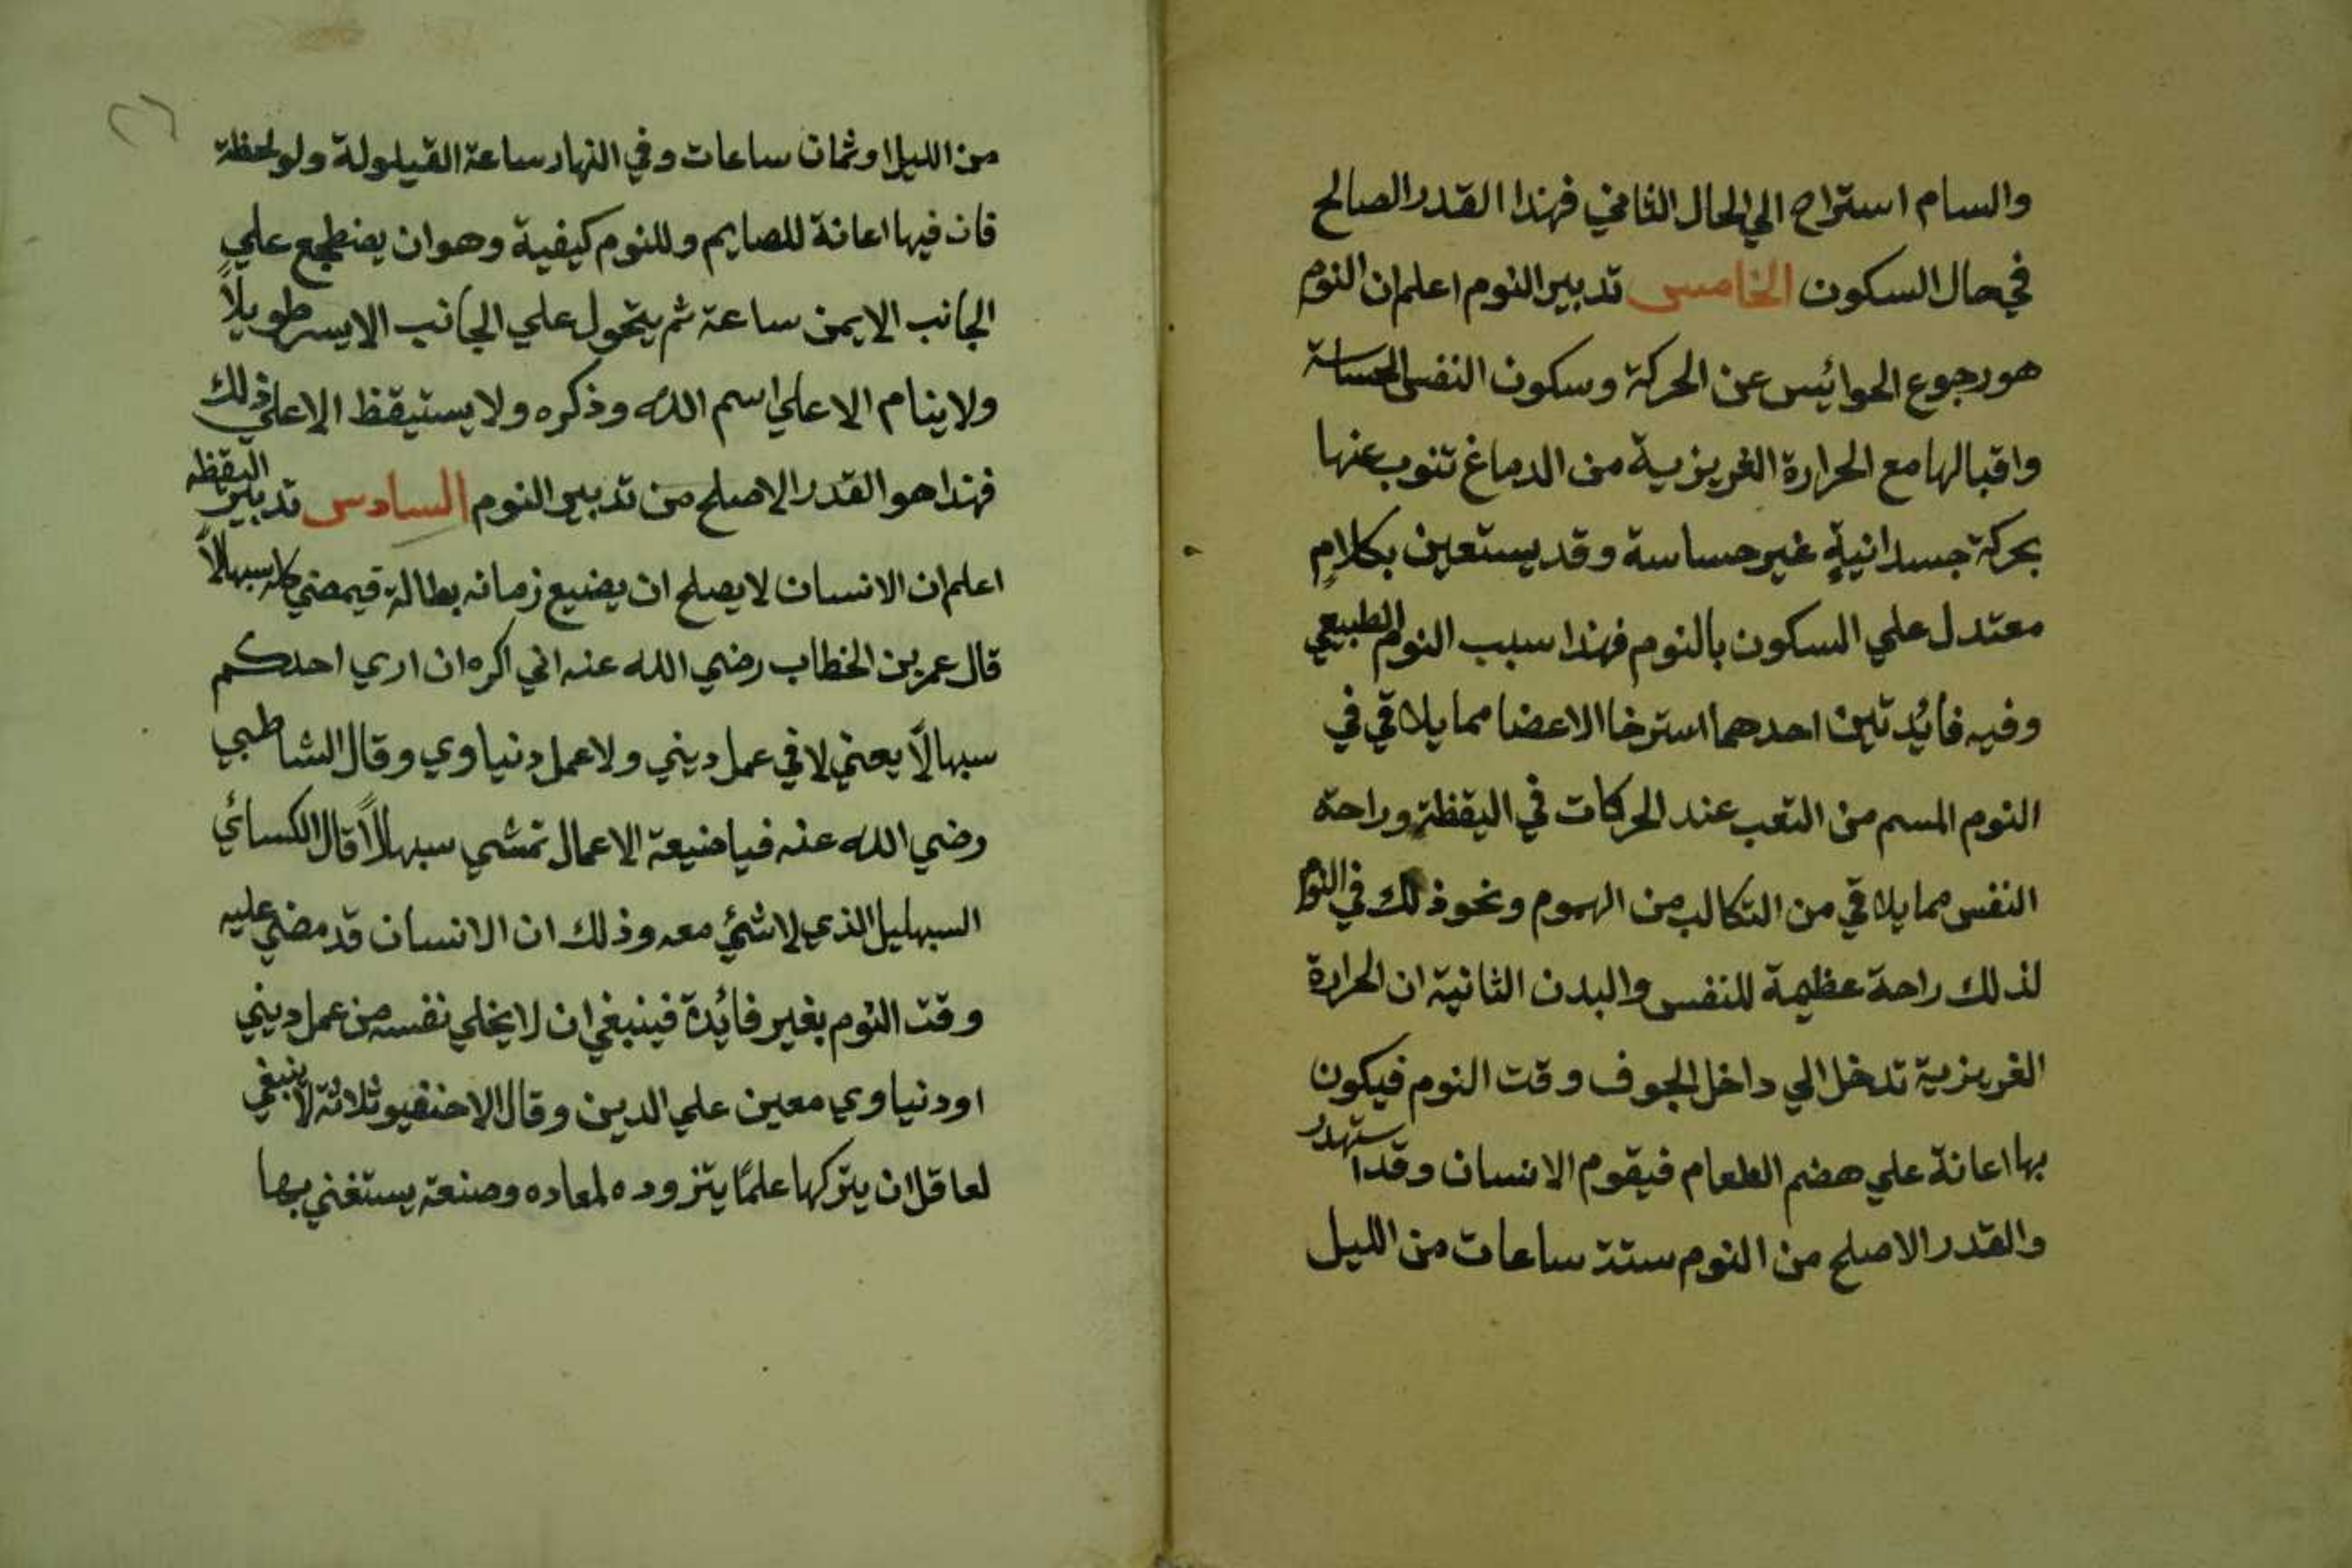 والسام استراح الي الحال الثاني فهذا القدر الصالح
في حال السكون الخامس تدبير النوم اعلم ان النوم
هو رجوع الحوائس عن الحركة وسكون النفس الحساسة
واقبالها مع الحرارة الغريزية من الدماغ تنوب عنها
بحركة جسدانيةٍ غير حساسة وقد يستعين بكلامٍ
معتدل علي السكون بالنوم فهذا سبب النوم الطبيعي
وفيه فائدتين احدهما استرخا الاعضا مما يلاقي في
النوم المسم من التعب عند الحركات في اليقظة وراحة
النفس مما يلاقي من التكالب من الهموم ونحو ذلك في النوم
لذلك راحة عظيمة للنفس والبدن الثانية ان الحرارة
الغريزية تدخل الي داخل الجوف وقت النوم فيكون
بها اعانة علي هضم الطعام فيقوم الانسان وقد استهدر
والقدر الاصلح من النوم ستة ساعات من الليل
٢٦
من الليل او ثمان ساعات وفي النهار ساعة القيلولة ولو لحظة
فان فيها اعانة للصايم وللنوم كيفية وهو ان يضطجع علي
الجانب الايمن ساعة ثم يتحول علي الجانب الايسر طويلاً
ولا ينام الا علي اسم الله وذكره ولا يستيقظ الا علي ذلك
فهذا هو القدر الاصلح من تدبير النوم السادس تدبير اليقظه
اعلم ان الانسان لا يصلح ان يضيع زمانه بطالة فيمضي كله سبهالاً
قال عمر بن الخطاب رضي الله عنه اني اكره ان اري احدكم
سبهالاً يعني لا في عمل ديني ولا عمل دنياوي وقال الشاطبي
رضي الله عنه فيا ضيعة الاعمال تمشي سبهلالاً قال الكسائي
السبهليل الذي لا شئ معه وذلك ان الانسان قد مضي عليه
وقت النوم بغير فائدة فينبغي ان لا يخلي نفسه من عمل ديني
او دنياوي معين علي الدين وقال الاحنفيو ثلاثة لا ينبغي
لعاقل ان يتركها علمًا يتزوده لمعاده وصنعة يستغني بها